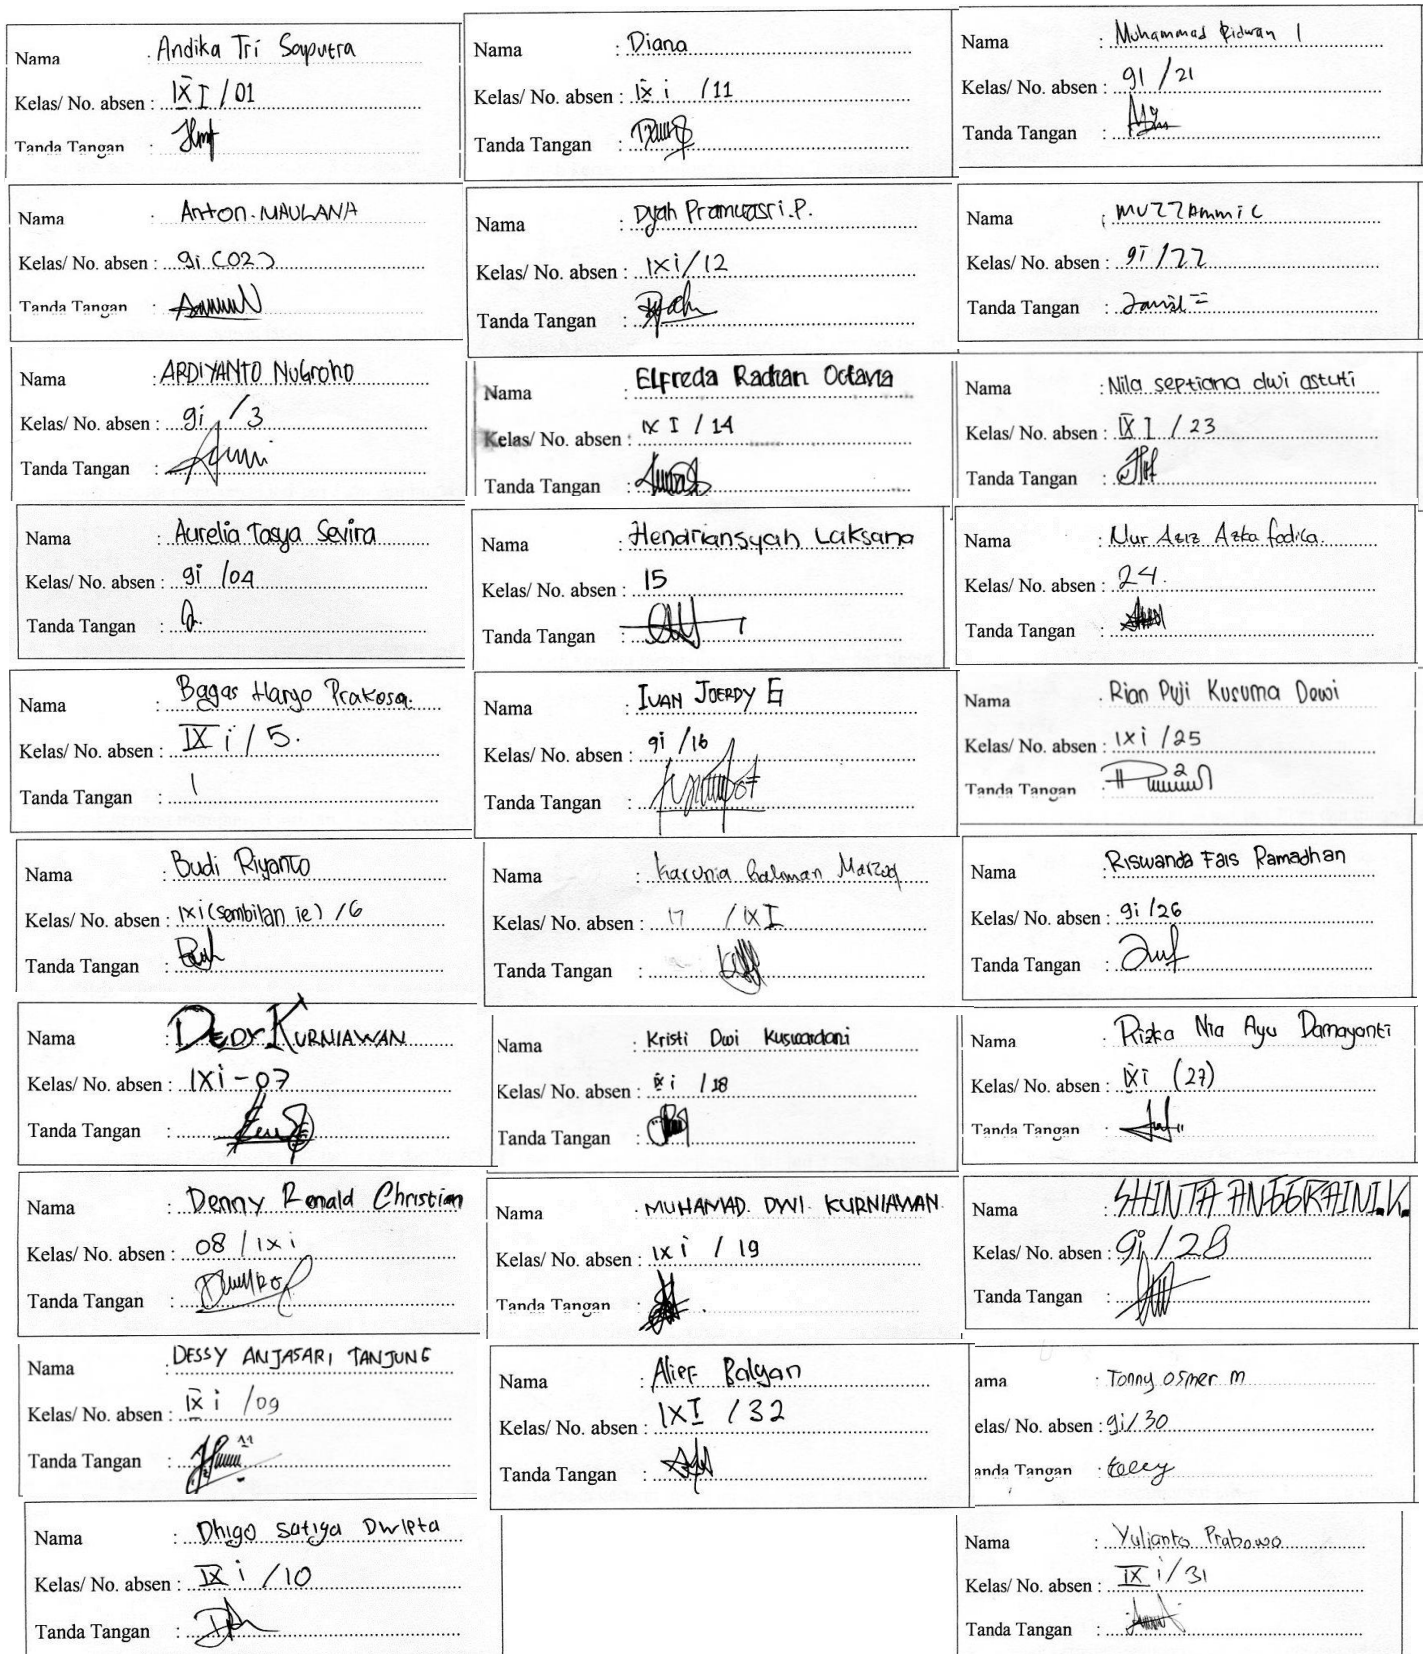 Nama : Andika Tri Saputra
Kelas/ No. absen : IX I / 01
Tanda Tangan :
Nama : Anton. MAULANA
Kelas/ No. absen : 9i (02)
Tanda Tangan :
Nama : ARDIYANTO NUGroho
Kelas/ No. absen : 9i / 3
Tanda Tangan :
Nama : Aurelia Tasya Sevira
Kelas/ No. absen : 9i /04
Tanda Tangan :
Nama : Bagas Haryo Prakosa.
Kelas/ No. absen : IX i / 5.
Tanda Tangan :
Nama : Budi Riyanto
Kelas/ No. absen : IXi (sembilan ie) /6
Tanda Tangan :
Nama : DEDY KURNIAWAN
Kelas/ No. absen : IXi - 07
Tanda Tangan :
Nama : Denny Ronald Christian
Kelas/ No. absen : 08 / IX i
Tanda Tangan :
Nama : DESSY ANJASARI TANJUNG
Kelas/ No. absen : IX i /09
Tanda Tangan :
Nama : Dhigo Satiya Dwipta
Kelas/ No. absen : IX i /10
Tanda Tangan :
Nama : Diana
Kelas/ No. absen : IX i /11
Tanda Tangan :
Nama : Dyah Pramuasri.P.
Kelas/ No. absen : IXi/12
Tanda Tangan :
Nama : Elfreda Radian Octavia
Kelas/ No. absen : IX I / 14
Tanda Tangan :
Nama : Hendriansyah Laksana
Kelas/ No. absen : 15
Tanda Tangan :
Nama : IVAN JOERDY G
Kelas/ No. absen : 9i /16
Tanda Tangan :
Nama : Karunia Rahman Marzuq
Kelas/ No. absen : 17 / IX I
Tanda Tangan :
Nama : Kristi Dwi Kuswardani
Kelas/ No. absen : IX i /18
Tanda Tangan :
Nama : MUHAMAD. DWI. KURNIAWAN
Kelas/ No. absen : IX i / 19
Tanda Tangan :
Nama : Alief Balyan
Kelas/ No. absen : IXI / 32
Tanda Tangan :
Nama : Muhammad Ridwan I
Kelas/ No. absen : 9I /21
Tanda Tangan :
Nama : MUZZAmmiL
Kelas/ No. absen : 9I /22
Tanda Tangan :
Nama : Nila septiana dwi astuti
Kelas/ No. absen : IX I / 23
Tanda Tangan :
Nama : Nur Aziz Azka fadica.
Kelas/ No. absen : 24.
Tanda Tangan :
Nama : Rian Puji Kusuma Dewi
Kelas/ No. absen : IXi /25
Tanda Tangan :
Nama : Riswanda Fais Ramadhan
Kelas/ No. absen : 9i /26
Tanda Tangan :
Nama : Rizka Nia Ayu Damayanti
Kelas/ No. absen : IXi (27)
Tanda Tangan :
Nama : SHINTA ANGGRAINI.K.
Kelas/ No. absen : 9i / 28
Tanda Tangan :
ama : Tonny Osmer M
elas/ No. absen : 9i/30
anda Tangan :
Nama : Yulianto Prabowo
Kelas/ No. absen : IX i/31
Tanda Tangan :